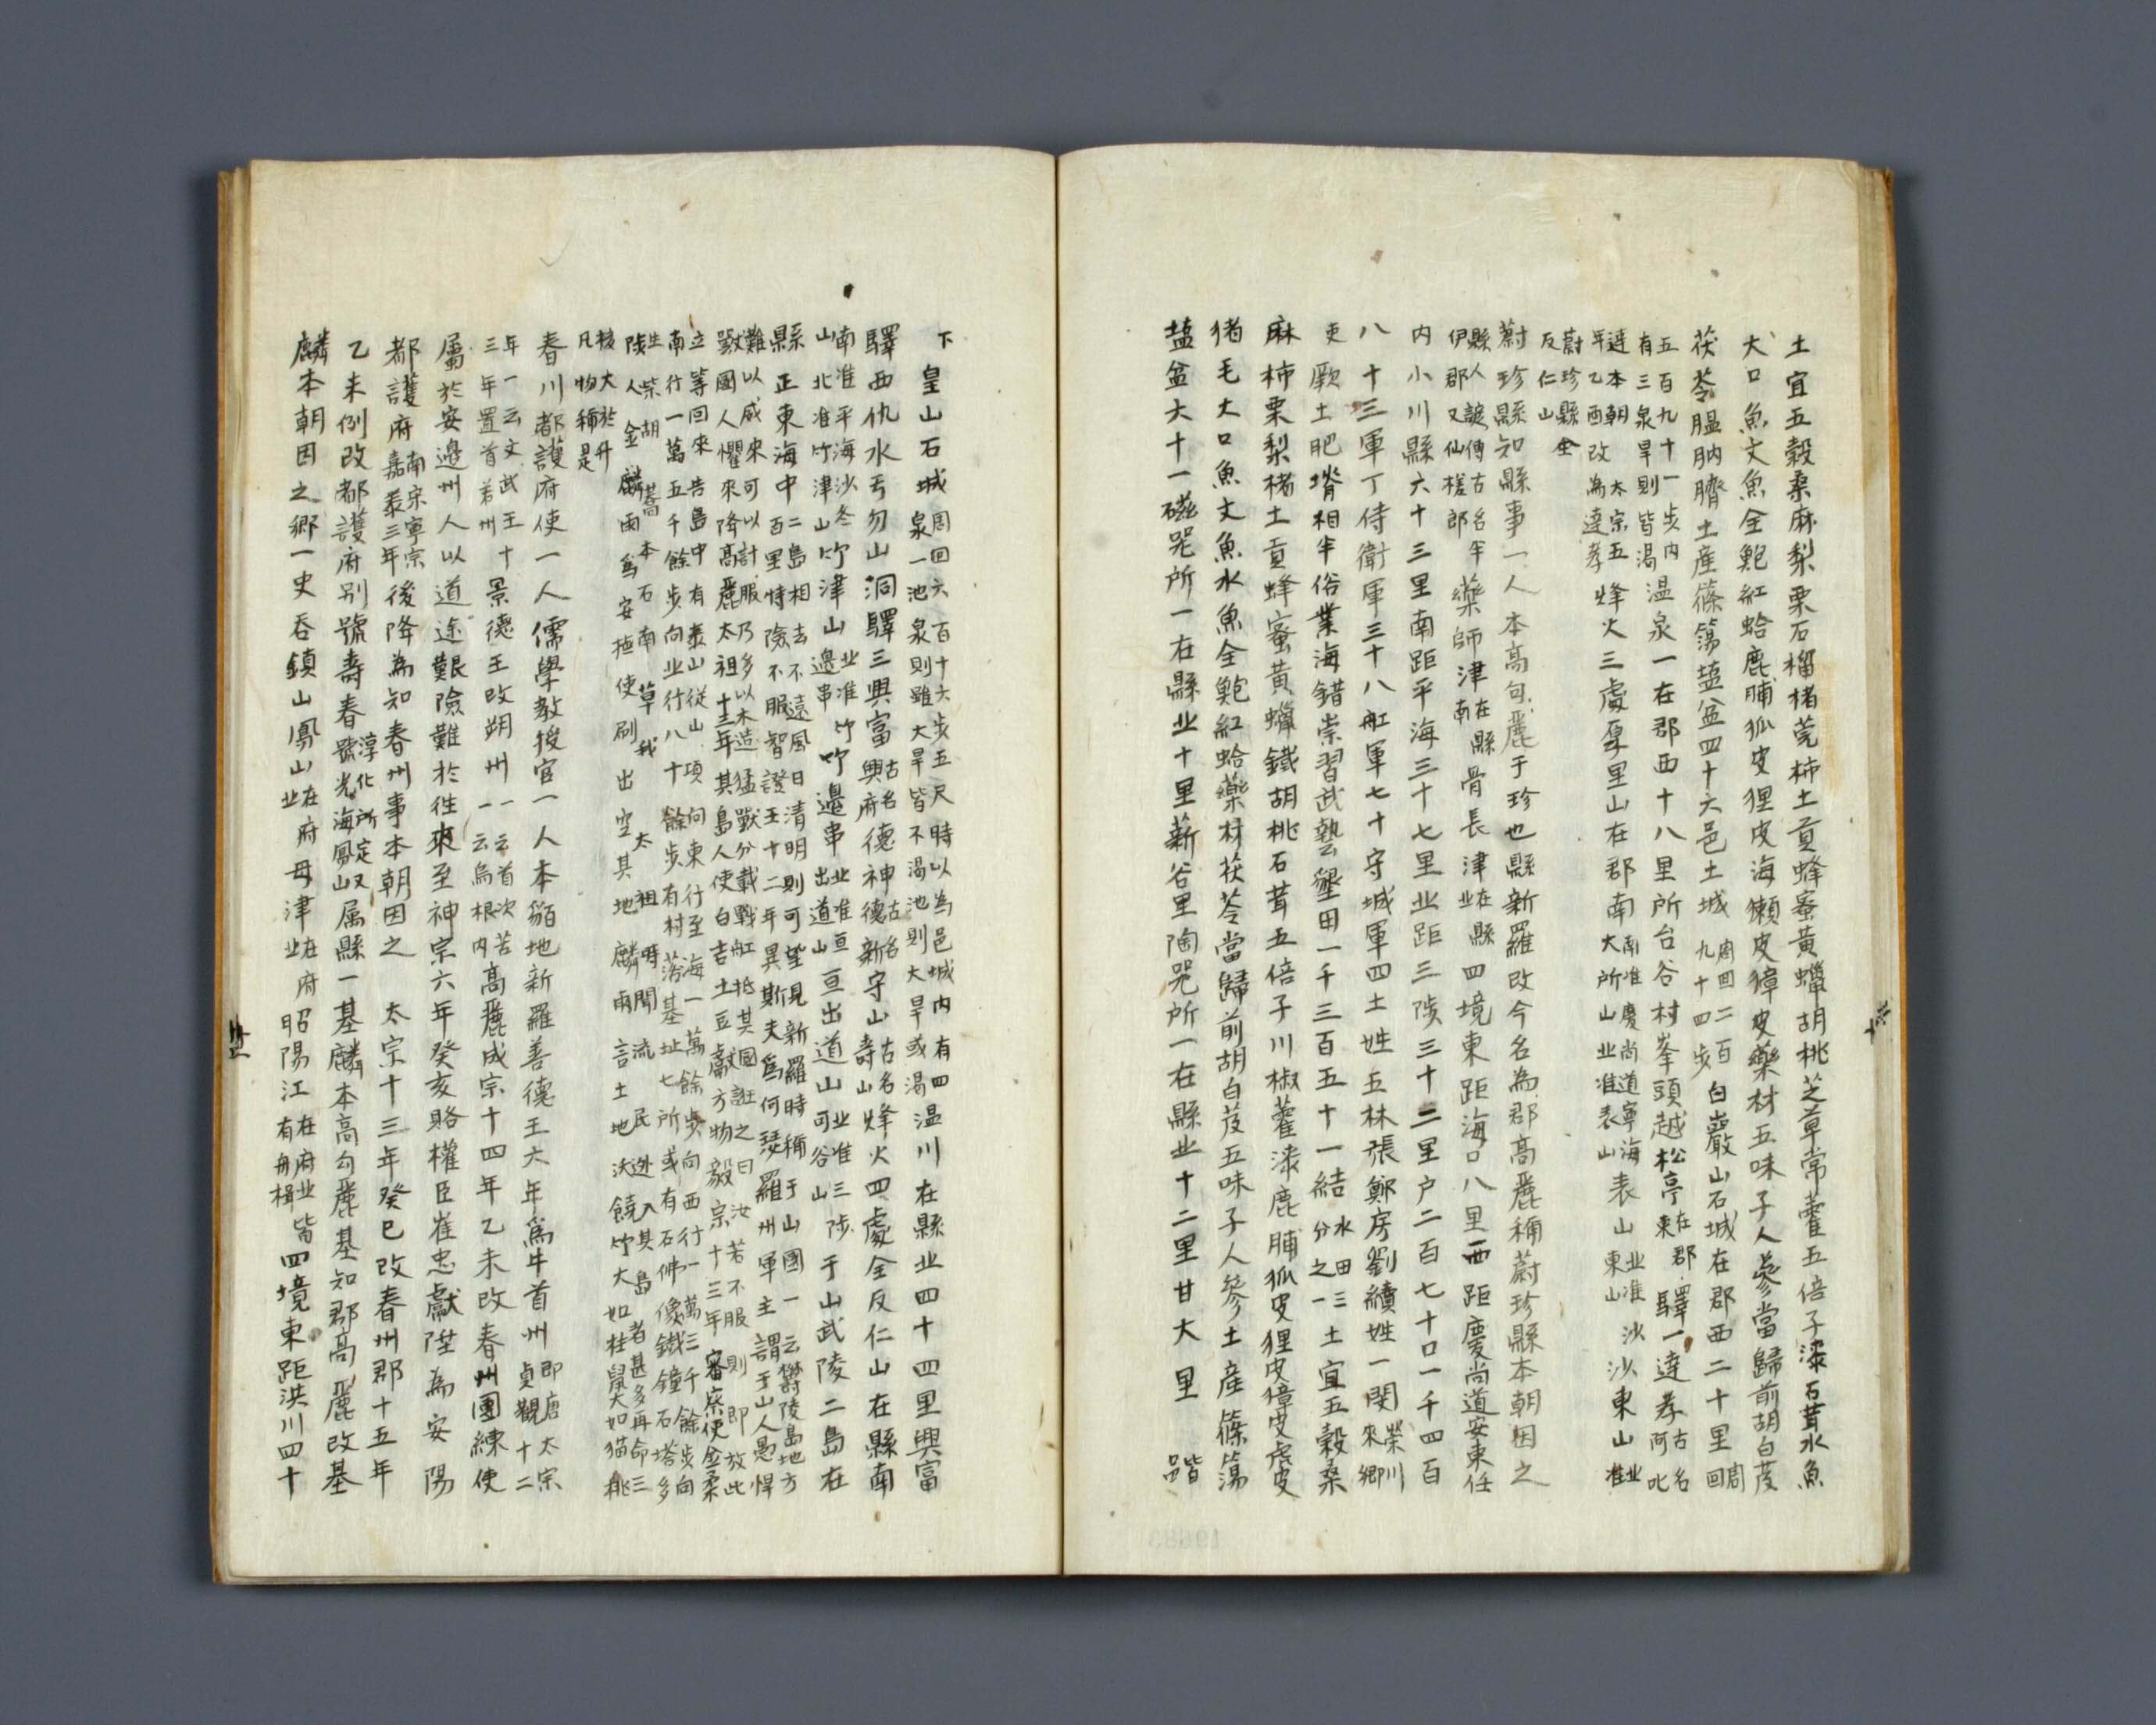 土宜五穀桑麻梨栗石榴楮莞柿土貢蜂蜜黃蠟胡桃芝草常藿五倍子漆石茸水魚
大口魚文魚全鮑紅蛤鹿脯狐皮狸皮海獺皮獐皮藥材五味子人蔘當歸前胡白芨
茯苓膃肭臍土産篠簜塩盆四十六邑土城周回二百九十四步白巖山石城在郡西二十里周回
五百九十一步內有三泉旱則皆渴温泉一在郡西十八里所台谷村峯頭越松亭在郡東驛一達孝古名阿叱
達本朝太宗五年乙酉改為達孝烽火三處厚里山在郡南南准慶尚道寧海大所山北准表山表山北准沙東山沙東山北准
蔚珍縣全反仁山
蔚珍縣知縣事一人本高句麗于珍也縣新羅改今名為郡高麗稱蔚珍縣本朝因之
縣人諺傳古名半伊郡又仙槎郎藥師津在縣南骨長津在縣北四境東距海口八里西距慶尚道安東任
內小川縣六十三里南距平海三十七里北距三陟三十二里户二百七十口一千四百
八十三軍丁侍衛軍三十八舡軍七十守城軍四土姓五林張鄭房劉續姓一閔榮川來鄉
吏厥土肥塉相半俗業海錯崇習武藝墾田一千三百五十一結水田三分之一土宜五穀桑
麻柿栗梨楮土貢蜂蜜黃蠟鐵胡桃石茸五倍子川椒藿漆鹿脯狐皮狸皮獐皮虎皮
猪毛大口魚文魚水魚全鮑紅蛤藥材茯苓當歸前胡白芨五味子人參土産篠簜
塩盆六十一磁器所一在縣北十里薪谷里陶器所一在縣北十二里甘大里皆
下皇山石城周回六百十六步五尺時以為邑城內有四泉一池泉則雖大旱皆不渴池則大旱或渴温川在縣北四十四里興富
驛西仇水亐勿山洞驛三興富古名興府德神古名德新守山古名壽山烽火四處全反仁山在縣南
南准平海沙冬山北准竹津山竹津山北准竹邊串竹邊串北准亘出道山亘出道山北准三陟可谷山于山武陵二島在
縣正東海中二島相去不遠風日清明則可望見新羅時稱于山國一云欝陵島地方百里恃險不服智證王十二年異斯夫為何瑟羅州軍主謂于山人愚悍
難以威來可以計服乃多以木造猛獸分載戰舡抵其國誑之曰汝若不服則即放此獸國人懼來降高麗太祖十三年其島人使白吉土豆獻方物毅宗十三年審察使金柔
立等回來告島中有泰山從山項向東行至海一萬餘步向西行一萬三千餘步向南行一萬五千餘步向北行八十餘步有村落基址七所或有石佛像鐵鐘石塔多
生柴胡蒿本石南草我太祖時聞流民逃入其島者甚多再命三陟人金麟雨為安撫使刷出空其地麟雨言土地沃饒竹大如柱鼠大如猫桃
核大於升凡物稱是
春川都護府使一人儒學敎授官一人本貊地新羅善德王六年為牛首州即唐太宗貞觀十二
年一云文武王十三年置首若州景德王改朔州一云首次若一云烏根內高麗成宗十四年乙未改春州團練使
屬於安邊州人以道途艱險難於徃來至神宗六年癸亥賂權臣崔忠獻陞為安陽
都護府南宋寧宗嘉泰三年後降為知春州事本朝因之太宗十三年癸巳改春州郡十五年
乙未例改都護府別號壽春淳化所定又號光海鳳山属縣一基麟本高句麗基知郡高麗改基
麟本朝因之鄉一史吞鎮山鳳山在府北母津在府北昭陽江在府北皆有舟楫四境東距洪川四十